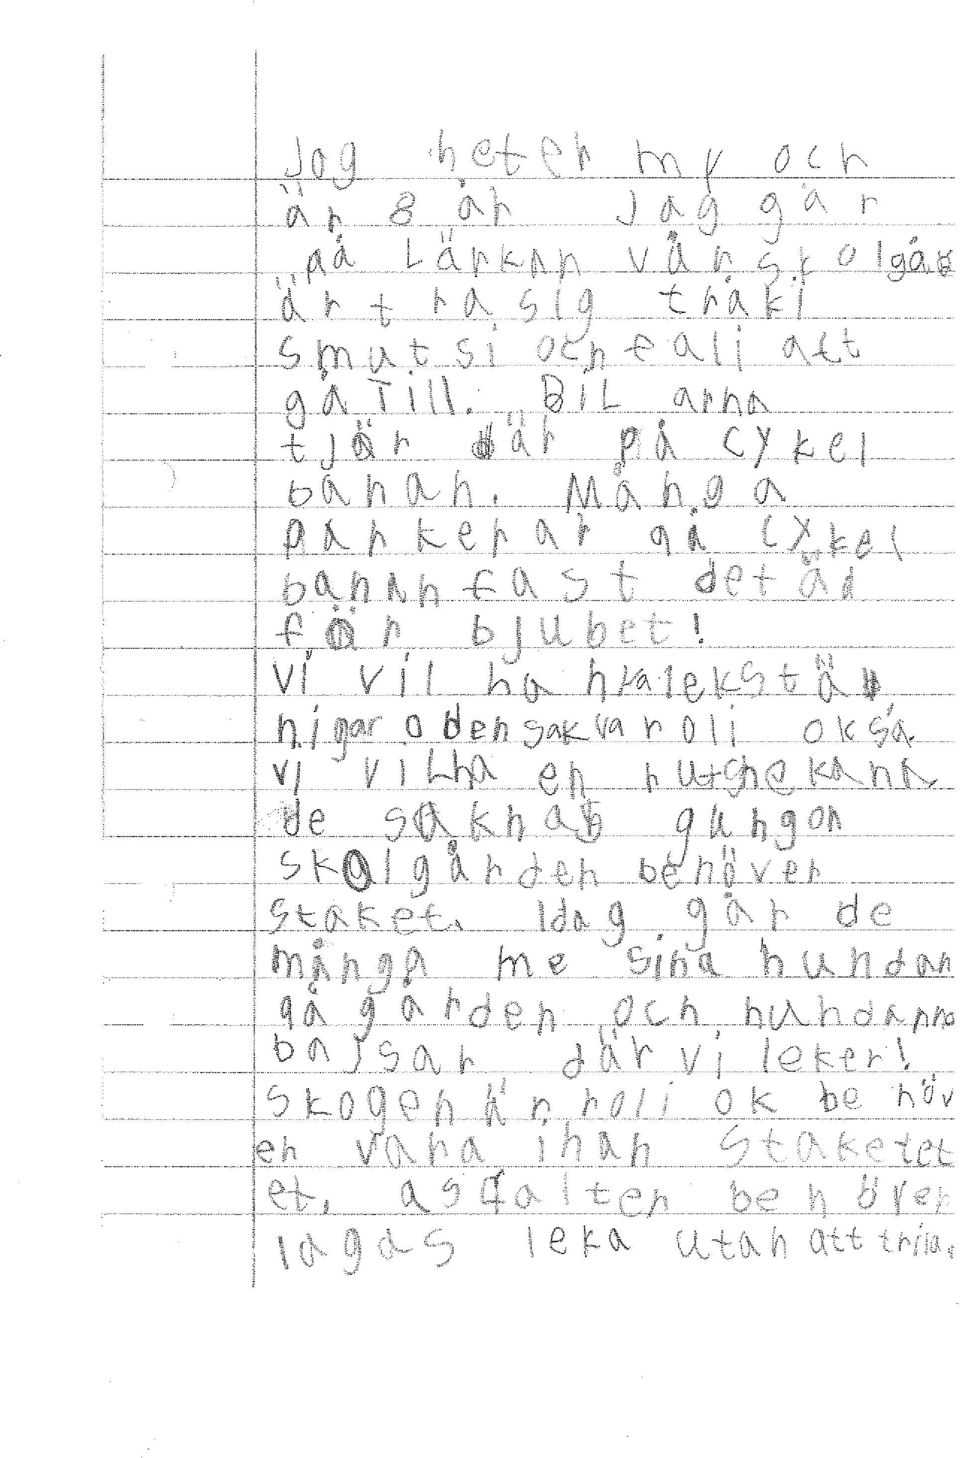 Jag heter my och
är 8 år Jag går
på Lärkan vår skolgår
är trasig tråki
smutsi och eali att
gåTill. BiL arna
tjör där på cykel
banan. Många
parkerar på cykel
banan fast det är
för bjubet!
vi vil ha
nigar o den sakvaroli okså.
vi viLha en rutshekana
de saknas gungor
skolgården behöver
staket. Idag går de
många me sina hundar
på gården och hundarna
bajsar där vi leker!
skogen är roli ok be höv
er vara inan staketet
et. asfalten behöver
lagas leka utan att trila.